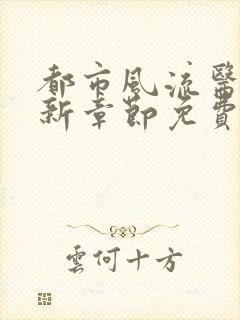 都市風流醫
新章節免費
雲何十方